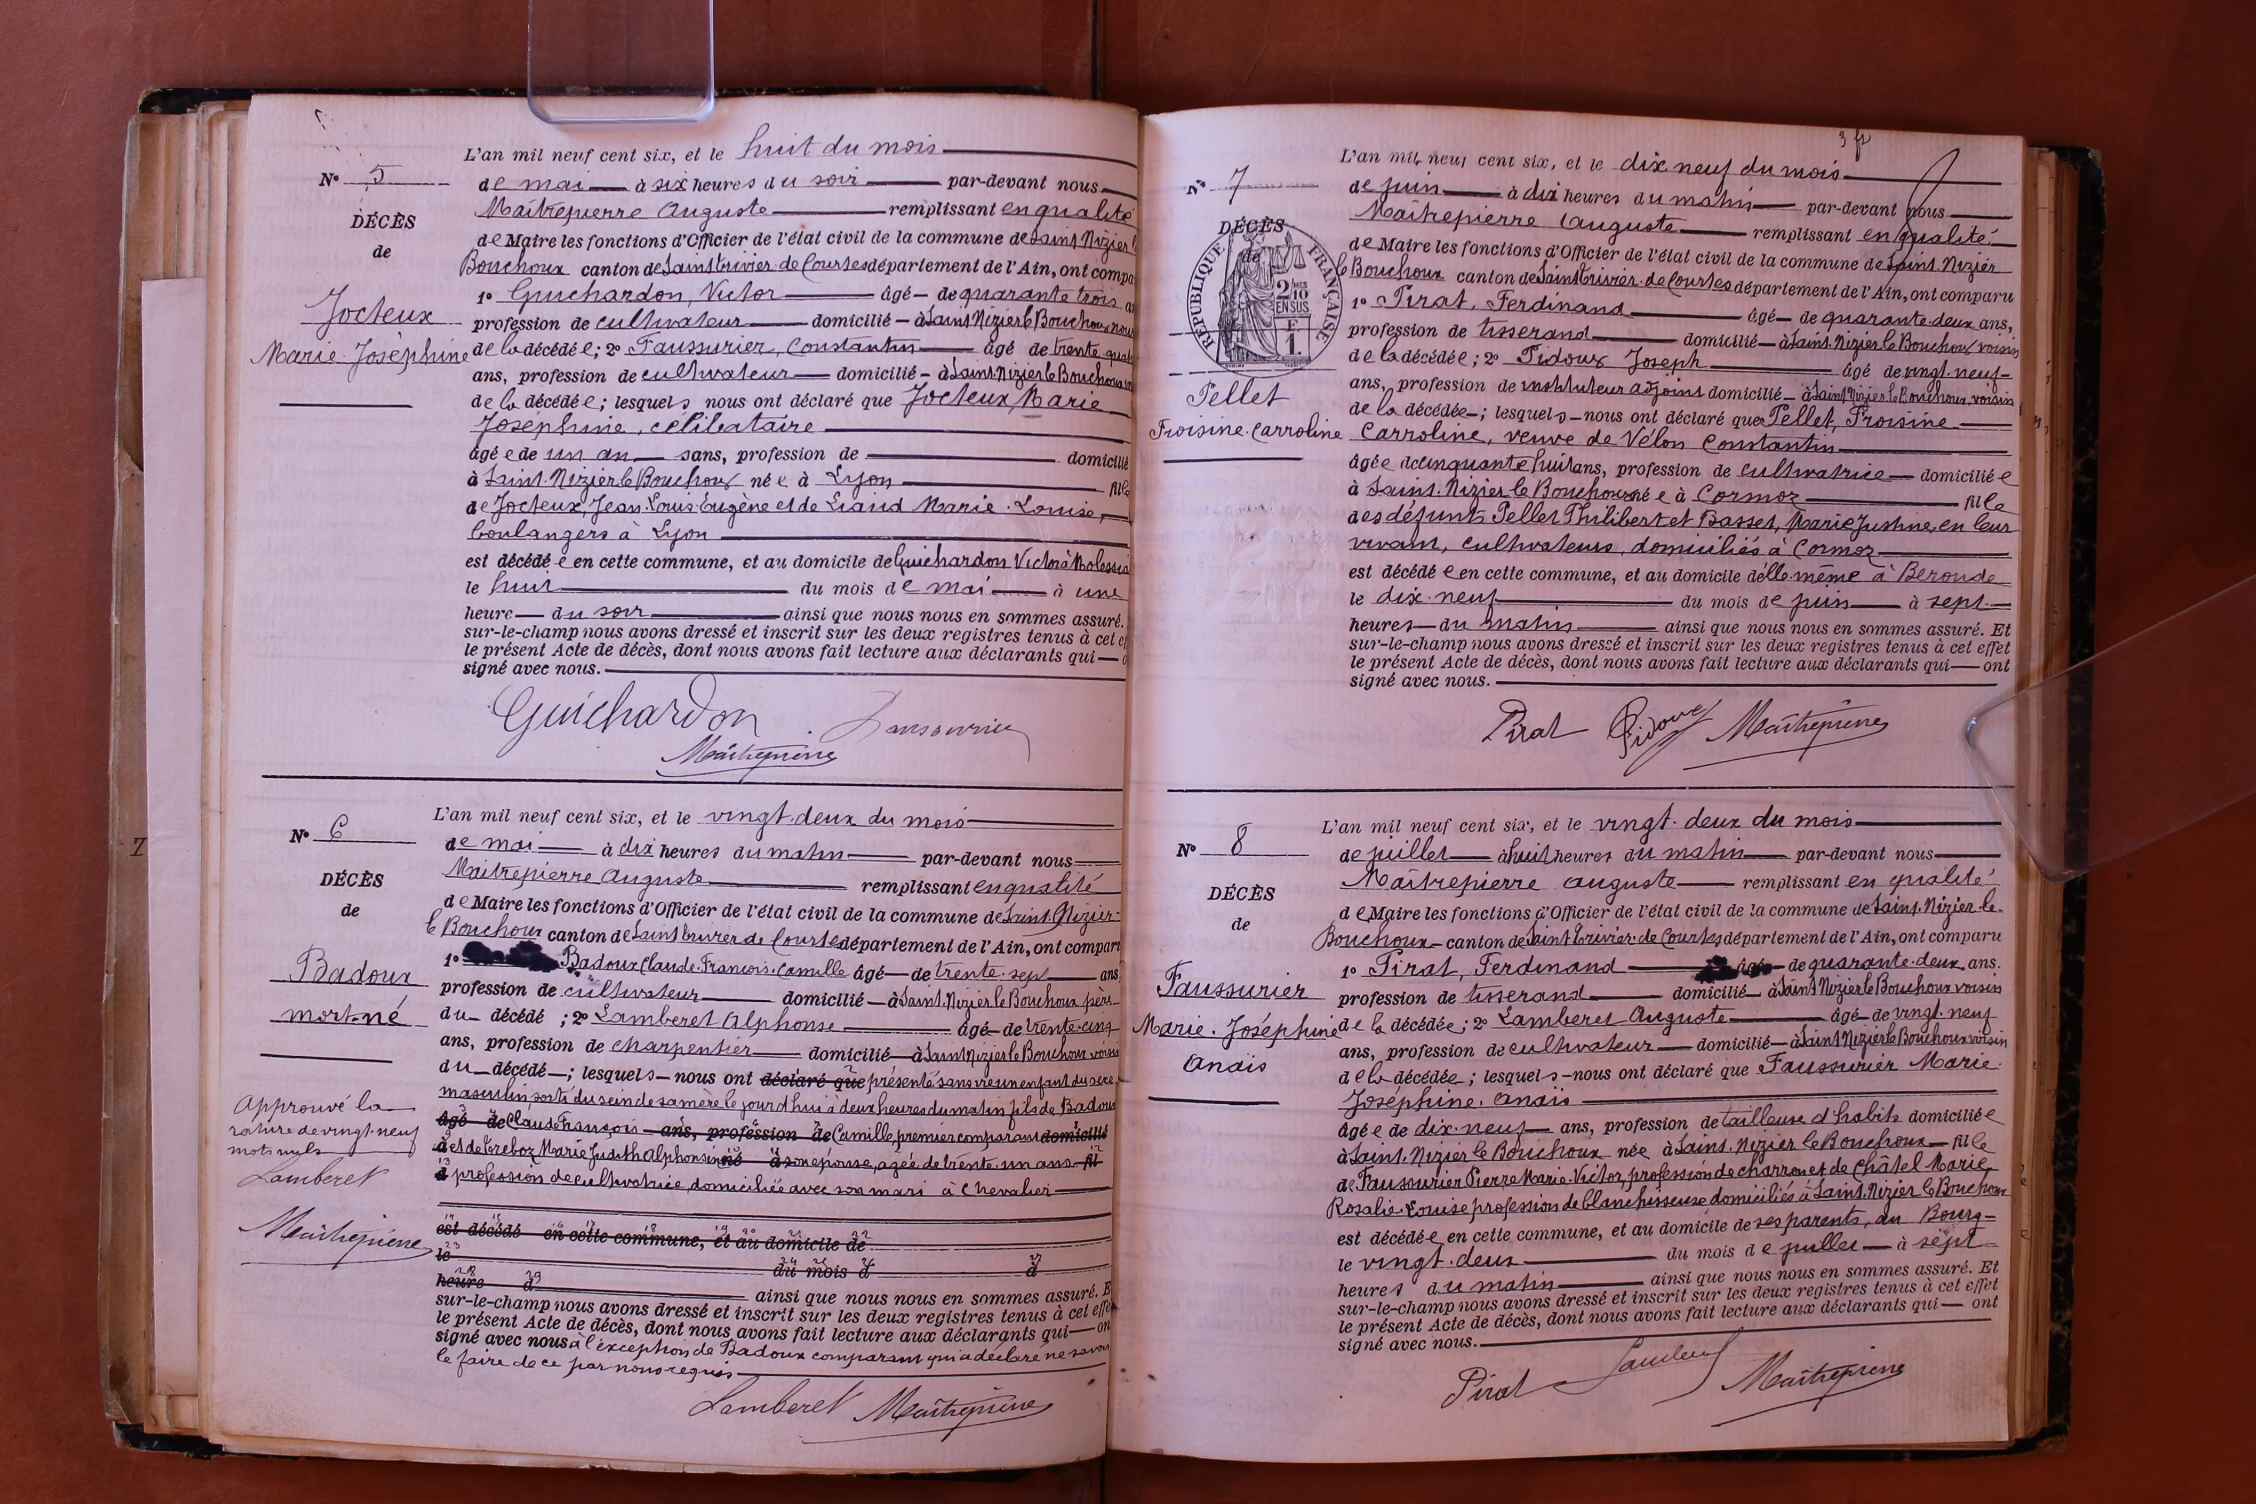 L'an mil neuf cent six, et le huit du mois
N° 5
de mai à six heures du soir par-devant nous
Maîtrepierre Auguste remplissant en qualité
DÉCÈS
de
de Maire les fonctions d'Officier de l'état civil de la commune de Saint Nizier le
Bouchoux canton de Saint Trivier de Courtes département de l'Ain, ont compa
1° Guichardon, Victor âgé de quarante trois an
Jocteux
Marie Joséphine
profession de cultivateur domicilié à Saint Nizier le Bouchoux
de la décédée; 2° Faussurier, Constantin âgé de trente
ans, profession de cultivateur domicilié à Saint Nizier le Bouchoux
de la décédée; lesquels nous ont déclaré que Jocteux, Marie
Joséphine, célibataire
âgée de un an ans, profession de domicilié
à Saint Nizier le Bouchoux née à Lyon fille
de Jocteux, Jean Louis Eugène et de Liand Marie Louise,
boulangers à Lyon
est décédée en cette commune, et au domicile de Guichardon Victor à
le huit du mois de mai à une
heure du soir ainsi que nous nous en sommes assuré.
sur-le-champ nous avons dressé et inscrit sur les deux registres tenus à cet ef
le présent Acte de décès, dont nous avons fait lecture aux déclarants qui o
signé avec nous.
Guichardon
Maîtrepierre
L'an mil neuf cent six, et le vingt-deux du mois
N° 6
de mai à dix heures du matin par-devant nous
Maîtrepierre Auguste remplissant en qualité
DÉCÈS
de
de Maire les fonctions d'Officier de l'état civil de la commune de Saint Nizier
le Bouchoux canton de Saint Trivier de Courtes département de l'Ain, ont comparu
1° Badoux Claude François Camille âgé de trente-sept ans
Badoux
mort-né
profession de cultivateur domicilié à Saint Nizier le Bouchoux père
du décédé; 2° Lamberet Alphonse âgé de trente-cinq
ans, profession de charpentier domicilié à Saint Nizier le Bouchoux voisin
du décédé; lesquels nous ont déclaré que présenté sans vie un enfant du sexe
masculin sorti du sein de sa mère le jour d'hui à deux heures du matin fils de Badoux
âgé de Claude François ans, profession de Camille, premier comparant domicilié
à et de Marie Judith Alphonsine né à son épouse, agée de trente un ans fil
d profession de cultivatrice, domiciliée avec son mari à Chevalier
Approuvé la
rature de vingt-neuf
mots nuls
Lamberet
Maîtrepierre
est décédé en cette commune, et au domicile de
le du mois d à
heure d ainsi que nous nous en sommes assuré. E
sur-le-champ nous avons dressé et inscrit sur les deux registres tenus à cet effet
le présent Acte de décès, dont nous avons fait lecture aux déclarants qui on
signé avec nous à l'exception de Badoux comparant qui a déclaré ne savoir
le faire de ce par nous requis
Lamberet Maîtrepierre
3 f
L'an mil neuf cent six, et le dix neuf du mois
N° 7
de juin à dix heures du matin par-devant nous
Maîtrepierre Auguste remplissant en qualité
DÉCÈS
de
RÉPUBLIQUE FRANÇAISE
2/10 EN SUS
F. 1.
de Maire les fonctions d'Officier de l'état civil de la commune de Saint Nizier
le Bouchoux canton de Saint Trivier de Courtes département de l'Ain, ont comparu
1° Pirat, Ferdinand âgé de quarante-deux ans,
profession de tisserand domicilié à Saint Nizier le Bouchoux voisin
de la décédée; 2° Pidoux Joseph âgé de vingt-neuf
Pellet
Froisine Carroline
ans, profession de instituteur adjoint domicilié à Saint Nizier le Bouchoux voisin
de la décédée; lesquels nous ont déclaré que Pellet, Froisine
Carroline, veuve de Vélon Constantin
âgée de cinquante huit ans, profession de cultivatrice domiciliée
à Saint Nizier le Bouchoux née à Cormoz fille
des défunts Pellet Philibert et Basset, Marie Justine, en leur
vivant, cultivateurs, domiciliés à Cormoz
est décédée en cette commune, et au domicile d'elle-même à Beronde
le dix-neuf du mois de juin à sept
heures du matin ainsi que nous nous en sommes assuré. Et
sur-le-champ nous avons dressé et inscrit sur les deux registres tenus à cet effet
le présent Acte de décès, dont nous avons fait lecture aux déclarants qui ont
signé avec nous.
Pirat Pidoux Maîtrepierre
L'an mil neuf cent six, et le vingt-deux du mois
N° 8
de juillet à huit heures du matin par-devant nous
Maîtrepierre Auguste remplissant en qualité
DÉCÈS
de
de Maire les fonctions d'Officier de l'état civil de la commune de Saint Nizier le
Bouchoux canton de Saint Trivier de Courtes département de l'Ain, ont comparu
1° Pirat, Ferdinand âgé de quarante-deux ans.
Faussurier
Marie Joséphine
Anaïs
profession de tisserand domicilié à Saint Nizier le Bouchoux voisin
de la décédée; 2° Lamberet Auguste âgé de vingt-neuf
ans, profession de cultivateur domicilié à Saint Nizier le Bouchoux voisin
de la décédée; lesquels nous ont déclaré que Faussurier Marie
Joséphine Anaïs
âgée de dix-neuf ans, profession de tailleuse d'habits domiciliée
à Saint Nizier le Bouchoux née à Saint Nizier le Bouchoux fille
de Faussurier Pierre Marie Victor, profession de charron et de Châtel Marie
Rosalie Louise profession de blanchisseuse domiciliés à Saint Nizier le Bouchoux
est décédée en cette commune, et au domicile de ses parents, au Bourg
le vingt-deux du mois de juillet à sept
heures du matin ainsi que nous nous en sommes assuré. Et
sur-le-champ nous avons dressé et inscrit sur les deux registres tenus à cet effet
le présent Acte de décès, dont nous avons fait lecture aux déclarants qui ont
signé avec nous.
Pirat Lamberet Maîtrepierre